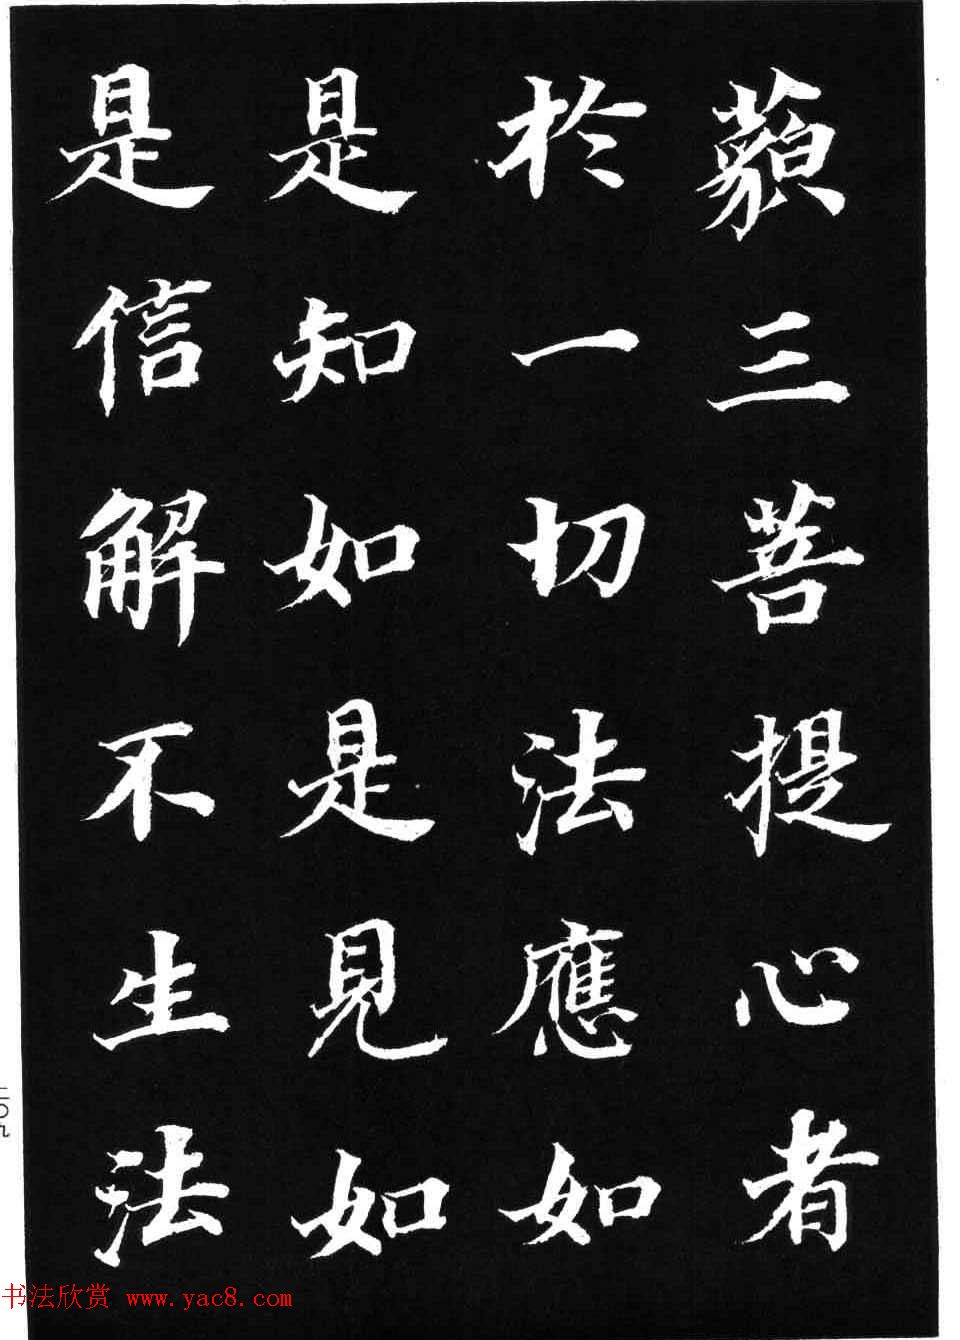 藐三菩提心者
於一切法應如
是知如是見如
是信解不生法
二〇九
书法欣赏 www.yac8.com